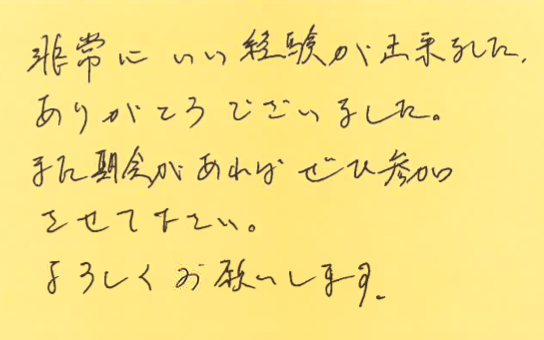 非常にいい経験が出来ました。
ありがとうございました。
また期会があればぜひ参加
させて下さい。
よろしくお願いします。